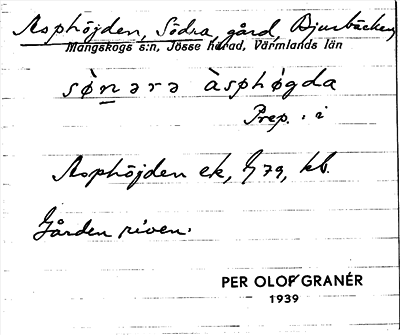 Asphöjden, Södra, gård, Djurbäcken,
Mangskogs s:n, Jösse härad, Värmlands län
sø̀nərə àsphǿgda
Prep. i
Asphöjden ek, G 79, kb.
Gården riven.
PER OLOF GRANÉR
1939